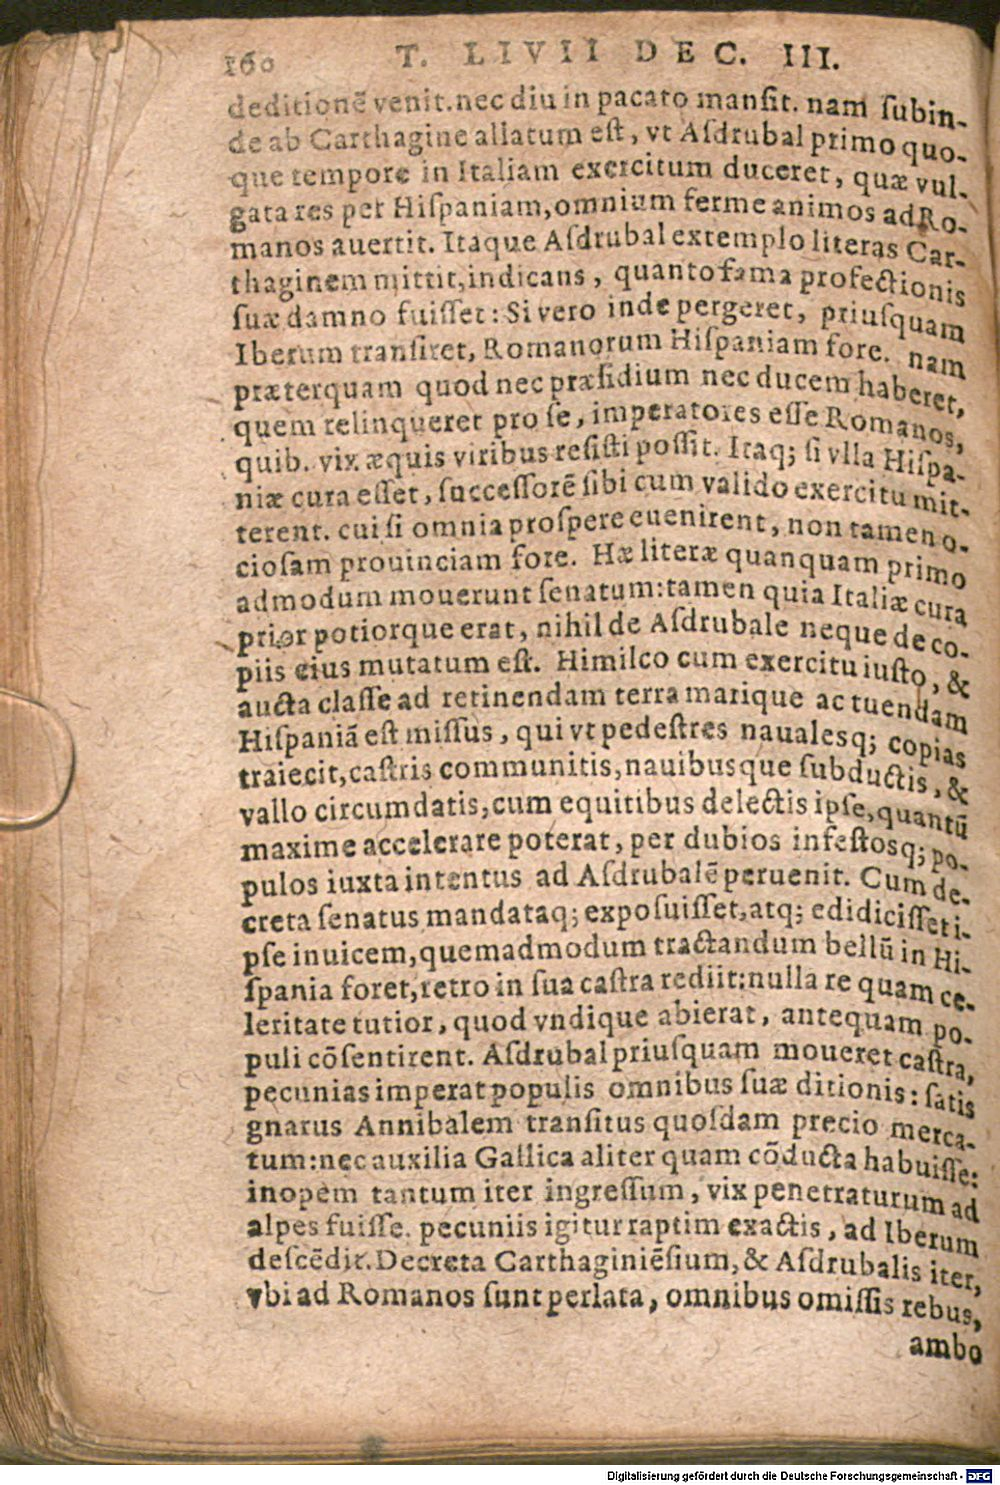 160 T. LIVII DEC. III.
deditionē venit. nec diu in pacato manſit. nam ſubin-
de ab Carthagine allatum eſt, vt Aſdrubal primo quo-
que tempore in Italiam exercitum duceret, quæ vul-
gata res per Hiſpaniam, omnium ferme animos ad Ro-
manos auertit. Itaque Aſdrubal extemplo literas Car-
thaginem mittit, indicans, quanto fama profectionis
ſuæ damno fuiſſet: Si vero inde pergeret, priuſquam
Iberum tranſiret, Romanorum Hiſpaniam fore. nam
præterquam quod nec præſidium nec ducem haberet,
quem relinqueret pro ſe, imperatores eſſe Romanos,
quib. vix æquis viribus reſiſti poſſit. Itaq; ſi vlla Hiſpa-
niæ cura eſſet, ſucceſſorē ſibi cum valido exercitu mit-
terent. cui ſi omnia proſpere euenirent, non tamen o-
cioſam prouinciam fore. Hæ literæ quanquam primo
admodum mouerunt ſenatum: tamen quia Italiæ cura
prior potiorque erat, nihil de Aſdrubale neque de co-
piis eius mutatum eſt. Himilco cum exercitu iuſto, &
aucta claſſe ad retinendam terra marique ac tuendam
Hiſpaniā eſt miſſus, qui vt pedeſtres naualesq; copias
traiecit, caſtris communitis, nauibusque ſubductis, &
vallo circumdatis, cum equitibus delectis ipſe, quantū
maxime accelerare poterat, per dubios infeſtosq; po-
pulos iuxta intentus ad Aſdrubalē peruenit. Cum de-
creta ſenatus mandataq; expoſuiſſet, atq; edidiciſſet i-
pſe inuicem, quemadmodum tractandum bellū in Hi-
ſpania foret, retro in ſua caſtra rediit: nulla re quam ce-
leritate tutior, quod vndique abierat, antequam po-
puli cōſentirent. Aſdrubal priuſquam moueret caſtra,
pecunias imperat populis omnibus ſuæ ditionis: ſatis
gnarus Annibalem tranſitus quoſdam precio merca-
tum: nec auxilia Gallica aliter quam cōducta habuiſſe:
inopem tantum iter ingreſſum, vix penetraturum ad
alpes fuiſſe. pecuniis igitur raptim exactis, ad Iberum
deſcēdit. Decreta Carthaginiēſium, & Aſdrubalis iter,
vbi ad Romanos ſunt perlata, omnibus omiſſis rebus,
ambo
Digitalisierung gefördert durch die Deutsche Forschungsgemeinschaft - DFG